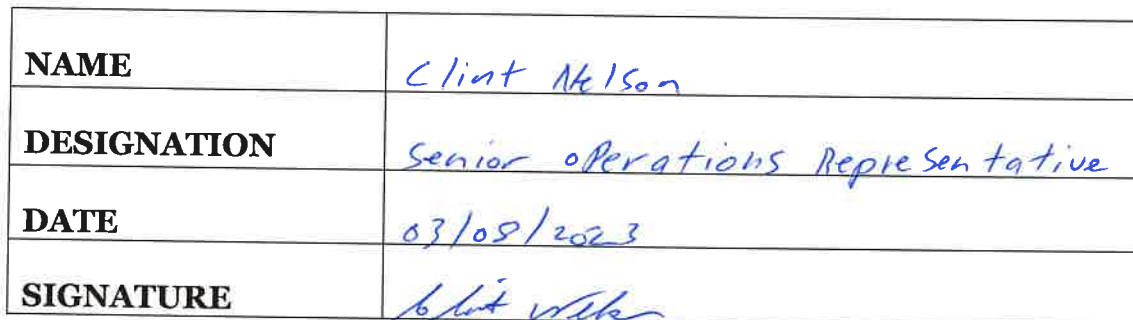 NAME Clint Nelson
DESIGNATION Senior oPerations RepreSentative
DATE 03/08/2023
SIGNATURE